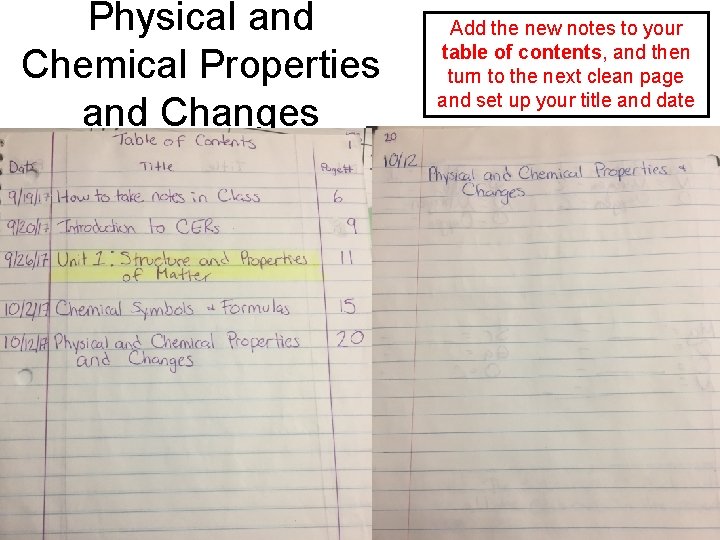 Physical and
Chemical Properties
and Changes
Add the new notes to your
table of contents, and then
turn to the next clean page
and set up your title and date
Table of Contents 1
Date Title Page #
9/19/17 How to take notes in Class 6
9/20/17 Introduction to CERs 9
9/26/17 Unit 1: Structure and Properties 11
of Matter
10/2/17 Chemical Symbols & Formulas 15
10/12/17 Physical and Chemical Properties 20
and Changes
20
10/12 Physical and Chemical Properties &
Changes